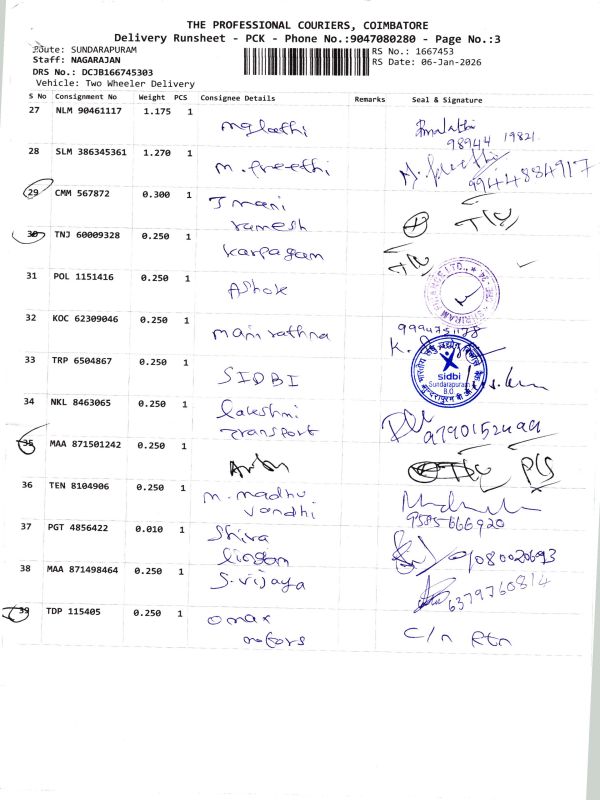 THE PROFESSIONAL COURIERS, COIMBATORE
Delivery Runsheet - PCK - Phone No.:9047080280 - Page No.:3
Route: SUNDARAPURAM
Staff: NAGARAJAN
DRS No.: DCJB166745303
Vehicle: Two Wheeler Delivery
RS No.: 1667453
RS Date: 06-Jan-2026
S No Consignment No Weight PCS Consignee Details Remarks Seal & Signature
27 NLM 90461117 1.175 1
98944 19821
28 SLM 386345361 1.270 1 M. Preethi
9944884917
29 CMM 567872 0.300 1 J mani
ramesh
30 TNJ 60009328 0.250 1 Karpagam
31 POL 1151416 0.250 1 Ashok
32 KOC 62309046 0.250 1 mani rathna
33 TRP 6504867 0.250 1 SIDBI
sidbi
Sundarapuram
B.O
34 NKL 8463065 0.250 1 lakshmi
transport
35 MAA 871501242 0.250 1
36 TEN 8104906 0.250 1 m. madhu
vandhi
9585666920
37 PGT 4856422 0.010 1 Shiva
lingam
38 MAA 871498464 0.250 1 S. vijaya
6379760814
39 TDP 115405 0.250 1 omax
motors
C/n Rtn